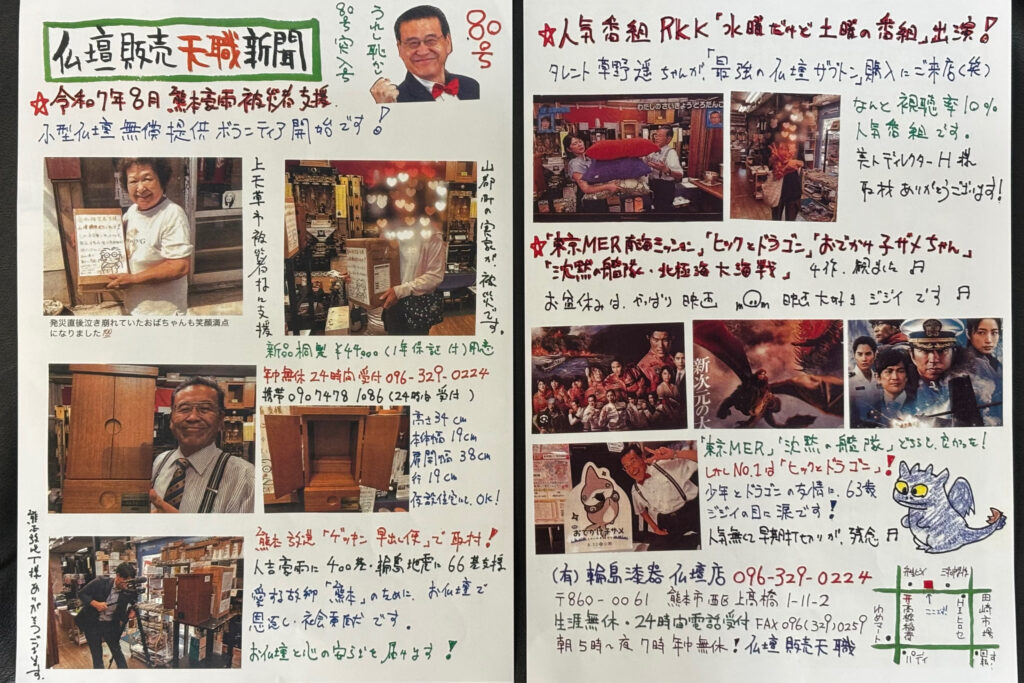 仏壇販売天職新聞
うれし恥かし
80号突入号
80号
☆令和7年8月 熊本豪雨被災者支援
小型仏壇無償提供ボランティア開始です!
上天草市被災者様に支援
山都町の実家が被災です。
発災直後泣き崩れていたおばちゃんも笑顔満点
になりました💯
新品桐製 ¥44,000 (1年保証付)用意
年中無休24時間受付 096-329-0224
携帯 090 7478 1086 (24時間受付)
高さ34cm
本体幅19cm
扉開幅38cm
行19cm
仮設住宅に、OK!
熊本放送T様ありがとうございます。
熊本放送「ゲツキン早出し便」で取材!
人吉豪雨に400基・輪島地震に66基支援
愛する故郷「熊本」のために、お仏壇で
恩返し・社会貢献です。
お仏壇と心の安らぎを届けます!
☆人気番組RKK「水曜だけど土曜の番組」出演!
タレント草野遥ちゃんが、「最強の仏壇ザブトン」購入にご来店(笑)
わたしのさいきょうどろだんご
なんと視聴率10%
人気番組です。
美人ディレクターH様
取材ありがとうございます!
☆「東京MER南海ミッション」「ヒックとドラゴン」「おでかけ子ザメちゃん」
「沈黙の艦隊・北極海大海戦」4作、観ました♬
お盆休みは、やっぱり映画 映画大好きジジイです♬
新次元の大
おでかけ子ザメ
「東京MER」「沈黙の艦隊」どちらも、良かった!
しかしNo.1は「ヒックとドラゴン」!
少年とドラゴンの友情に、63歳
ジジイの目に涙です!
人気無く早期打ち切りが、残念♬
(有)輪島漆器仏壇店 096-329-0224
〒860-0061 熊本市西区上高橋1-11-2
生涯無休・24時間電話受付 FAX096(329)0259
朝5時~夜7時年中無休!仏壇販売天職
ここです!
高橋稲荷
ゆめマート
田崎市場